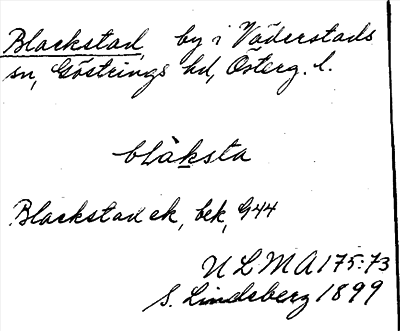 Blackstad, by i Väderstads
sn, Göstrings hd, Österg. l.
blàksta
Blackstad ek, bek, G44
ULMA 175:73
S. Lindeberg 1899